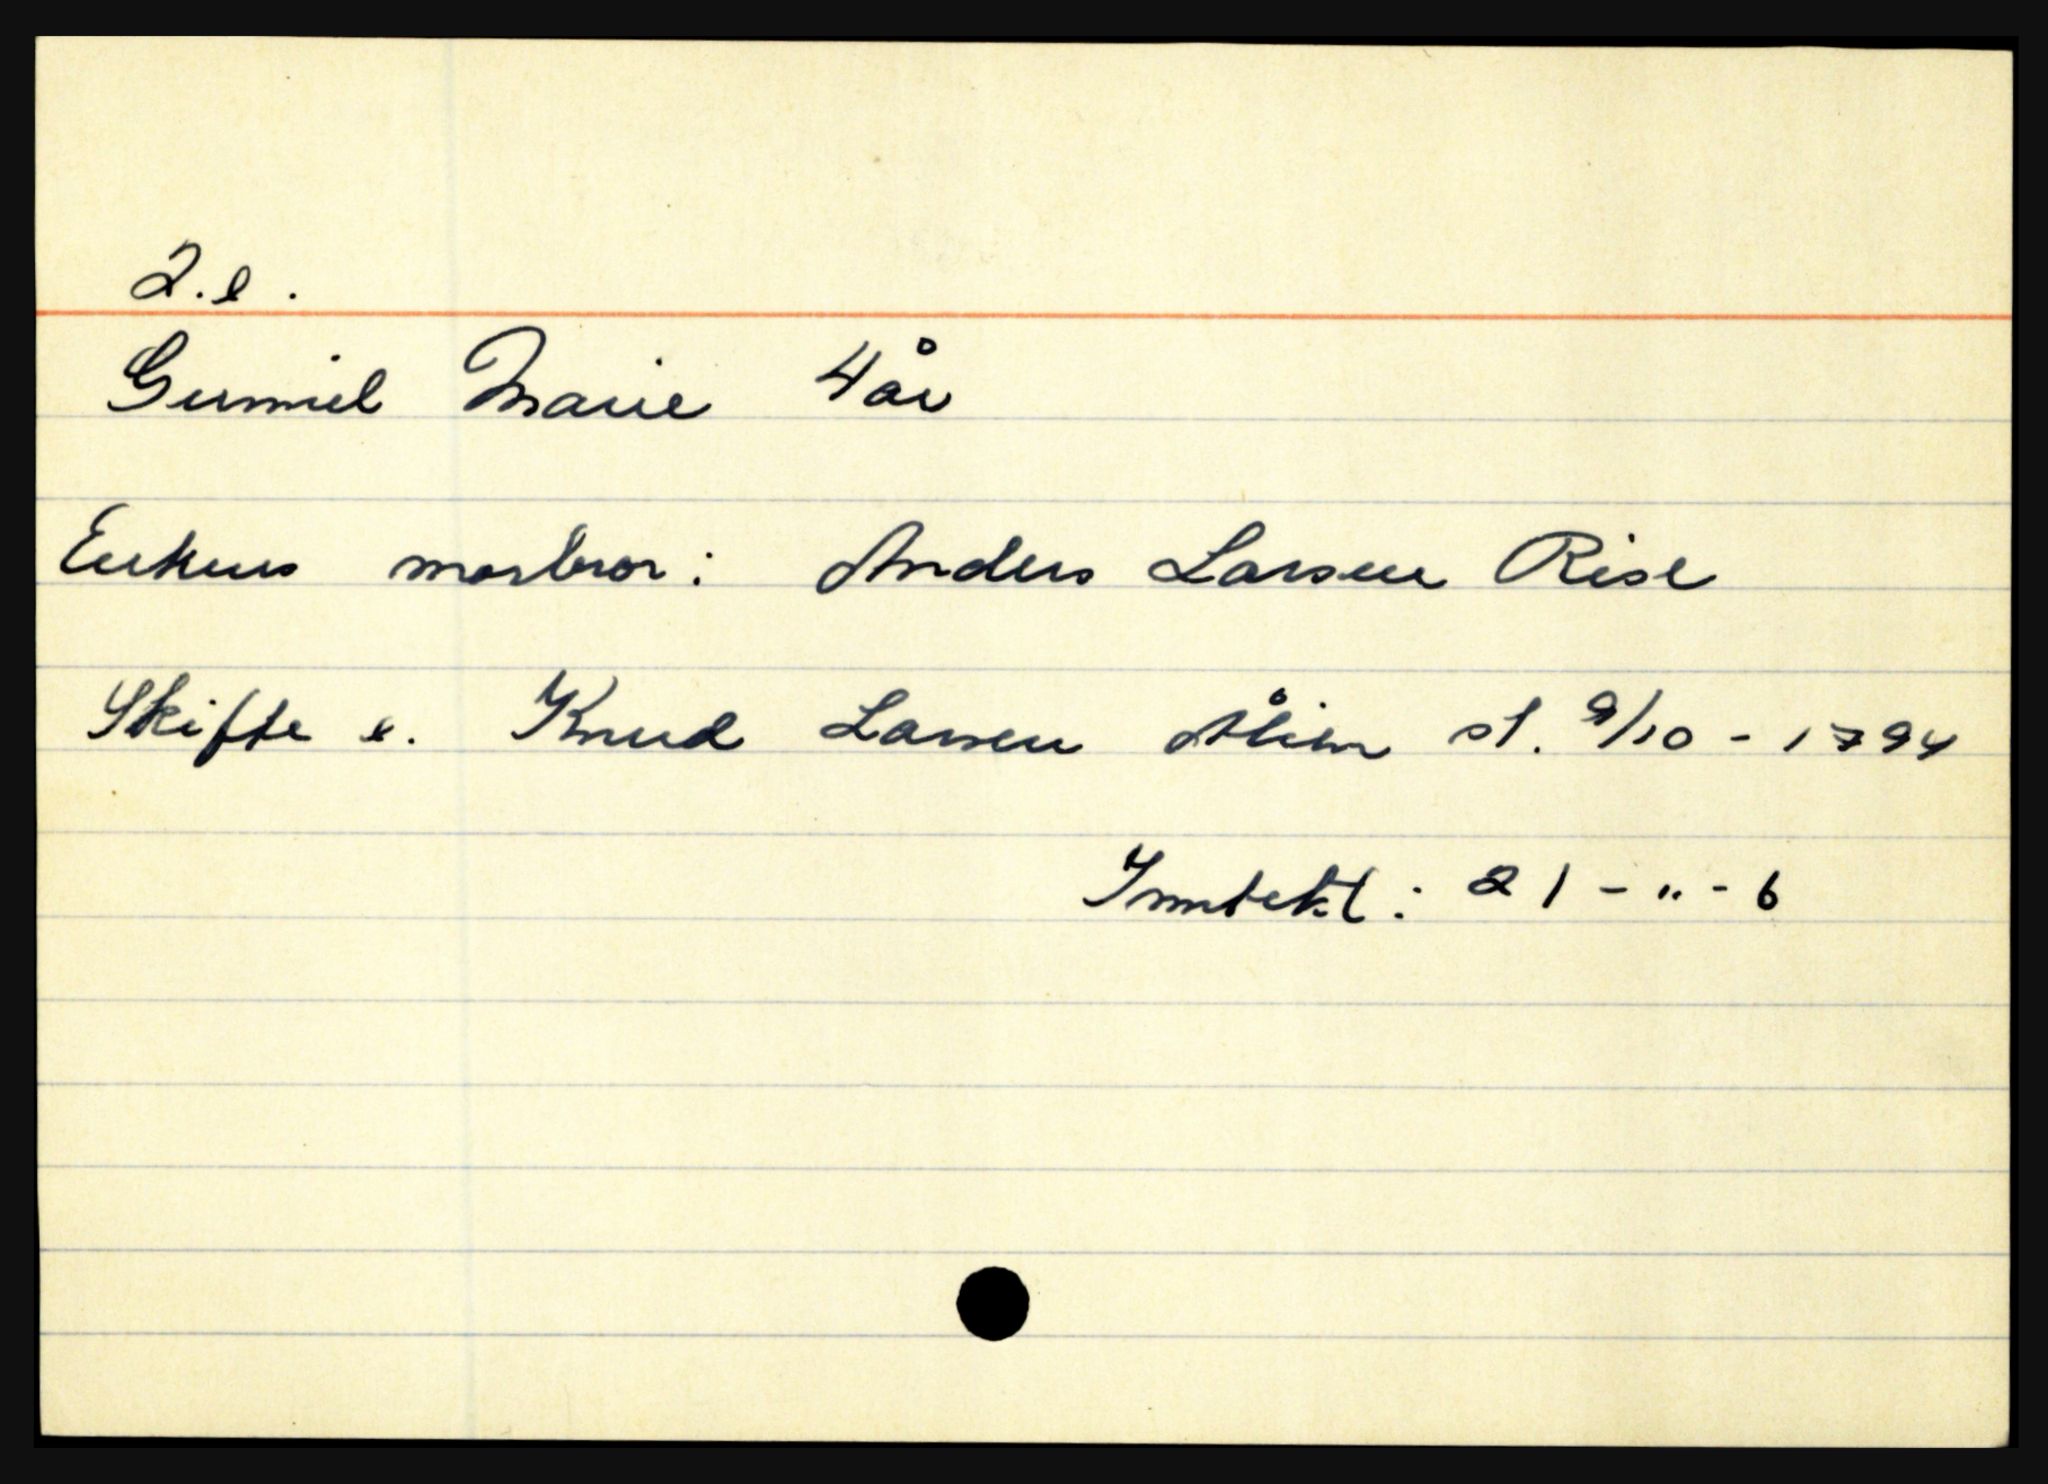 2. e.
Gunnild Marie 4 år
Enkens morbror: Anders Larsen Rise
Skifte e. Knud Larsen st. 9/10 - 1794
Inntekt: 21 - " - 6